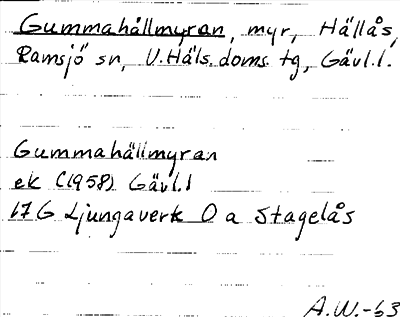 Gummahållmyran, myr, Hällås,
Ramsjö sn, V.Häls. doms. tg, Gävl.l.
Gummahällmyran
ek (1958) Gävl.l
17 G Ljungaverk O a Stagelås
A.W.-63